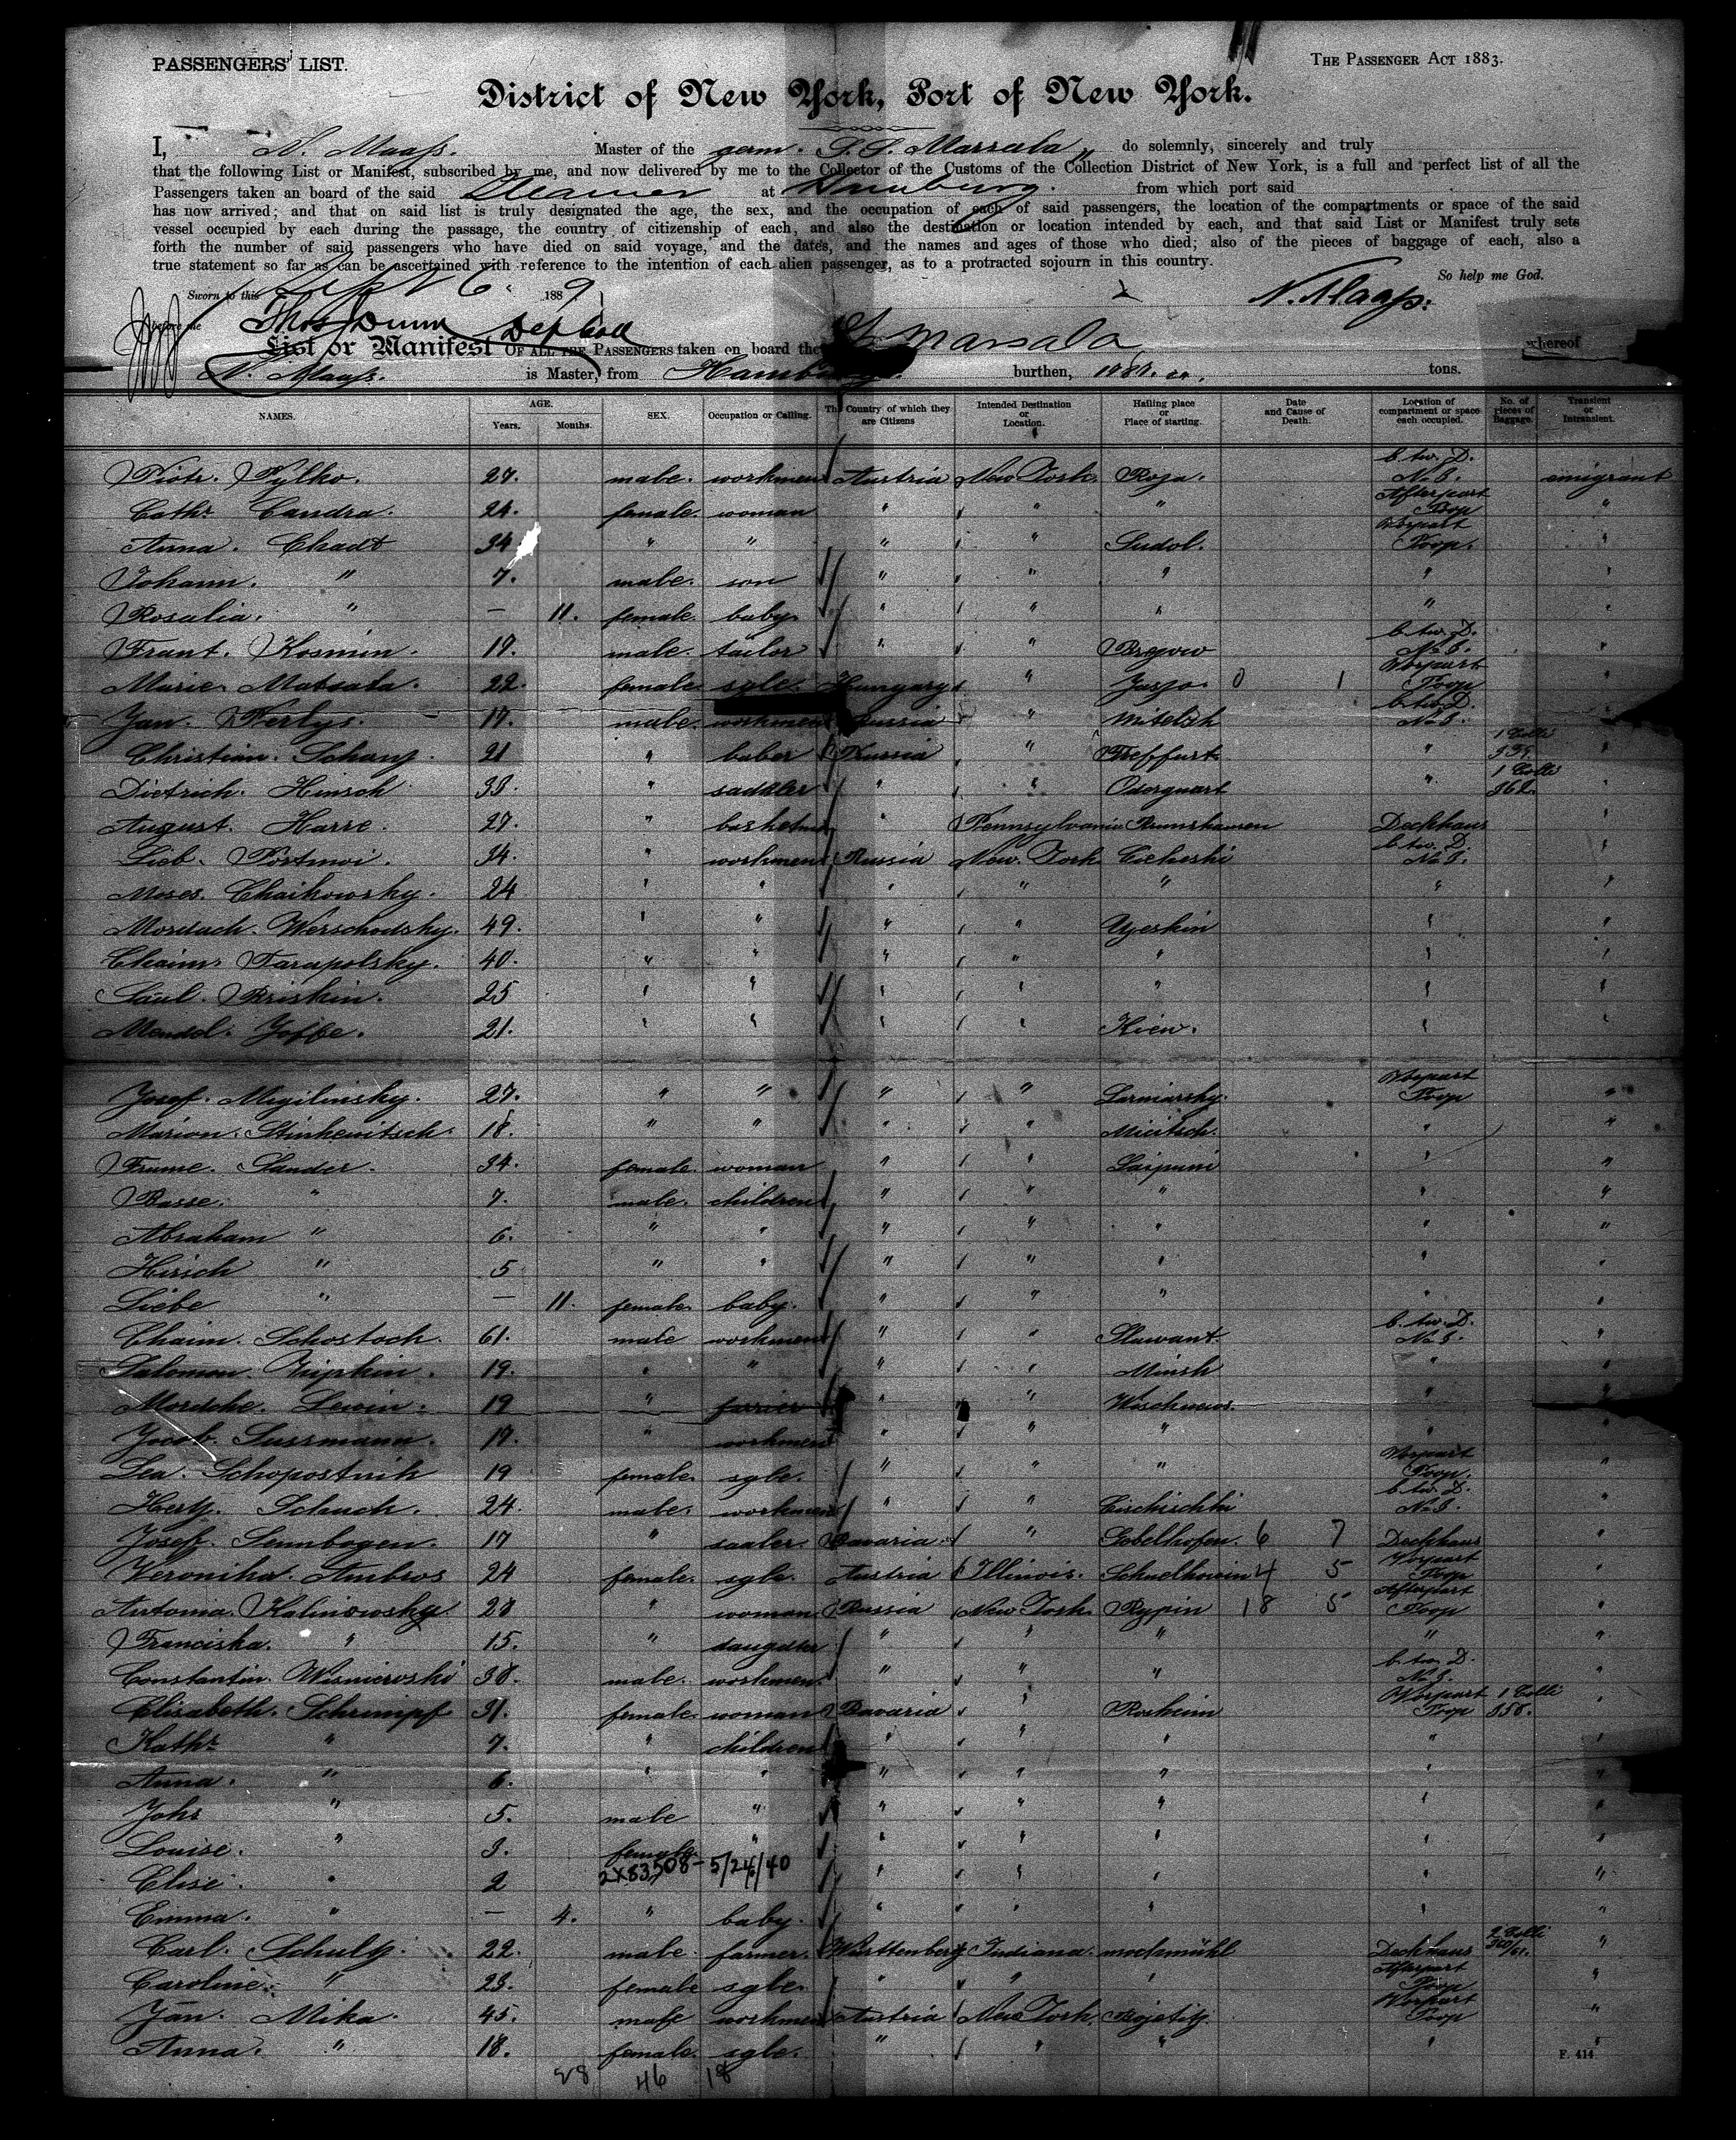 PASSENGERS' LIST.
THE PASSENGER ACT 1883.
District of New York, Port of New York.
I, N. Maass. Master of the germ. S.S. Marsala do solemnly, sincerely and truly
that the following List or Manifest, subscribed by me, and now delivered by me to the Collector of the Customs of the Collection District of New York, is a full and perfect list of all the
Passengers taken an board of the said Steamer at Hamburg. from which port said
has now arrived; and that on said list is truly designated the age, the sex, and the occupation of each of said passengers, the location of the compartments or space of the said
vessel occupied by each during the passage, the country of citizenship of each, and also the destination or location intended by each, and that said List or Manifest truly sets
forth the number of said passengers who have died on said voyage, and the dates, and the names and ages of those who died; also of the pieces of baggage of each, also a
true statement so far as can be ascertained with reference to the intention of each alien passenger, as to a protracted sojourn in this country.
So help me God.
Sworn to this Sept 16. 1889
N. Maass.
before me Thos Dunn Dep Coll
List or Manifest OF ALL THE PASSENGERS taken on board the Marsala whereof
N. Maass. is Master, from Hamburg. burthen, tons.
NAMES. AGE. Years. Months. SEX. Occupation or Calling. The Country of which they are Citizens Intended Destination or Location. Hailing place or Place of starting. Date and Cause of Death. Location of compartment or space each occupied. No. of pieces of Baggage. Transient or Intransient.
Piotr. Pylko. 27. male. workmen Austria New York Roja. b. tw. D. No 3. emigrant
Cathr. Candra. 24. female. woman " " " Afterpart Poop "
Anna. Chadt 34 " " " " Sudol. Vorpart Poop. "
Johann. " 7. male. son " " " " "
Rosalia. " — 11. female. baby " " " " "
Frant. Kosmin. 19. male. tailor " " Bregow b. tw. D. No 3. "
Marie. Matsata. 22. female. sgle. Hungary " Jasso. 0 1 Vorpart Poop "
Jan. Werlys. 19. male. workmen Russia " Mitelsk b. tw. D. No 3. "
Christian. Schang. 21 " baber Prussia " Treffurt " 1 Colli "
Dietrich. Hinsch 33. " saddler " " " 1 Colli "
August. Harre. 27. " " Pennsylvania Deckhaus "
Lieb. Portnoi. 34. " workmen Russia New York b. tw. D. No 3. "
Moses. Chaikowsky. 24 " " " " " " "
Mordach. Werschodsky. 49. " " " " " "
Chaim. Tarapolsky. 40. " " " " " " "
Saul. Briskin. 25 " " " " " " "
Mendel. Joffe. 21. " " " " Kiew. " "
Josef. Migilinsky. 27. " " " " Vorpart Poop "
Marion. Stinkewitsch. 18. " " " " " "
Frume. Sander. 34. female. woman " " " "
Basse. " 7. male. children " " " " "
Abraham " 6. " " " " " " "
Hirsch " 5 " " " " " " "
Liebe " — 11. female. baby. " " " "
Chaim. Schostoch. 61. male workmen " " Slawant. b. tw. D. No 3. "
Salomon. Zripkin. 19. " " " " Minsk " "
Mordche. Lewin. 19 " " " "
Jacob. Sussmann. 19. " workmen " " " " "
Lea. Schopostnik 19 female. sgle. " " " Vorpart Poop. "
Hertz. Schuch. 24. male. workmen " " b. tw. D. No 3. "
Josef. Sennbogen. 17 " Bavaria. " Gobelhofen. 6 7 Deckhaus "
Veronika. Ambros 24 female. sgle. Austria Illinois. 4 5 Vorpart Poop
Antonia. Kalinowsky 28 " woman Russia New York Rypin 18 5 Afterpart Poop "
Franciska. " 15. " daugdter " " " " "
Constantin. Wisnieroski 38. male. workmen. " " " b. tw. D. No 3. "
Elisabeth. Schrimpf 31. female. woman Bavaria " Rosheim Vorpart Poop 1 Colli 358. "
Kathr. " 7. " children " " " " "
Anna. " 6. " " " " " " "
Johs " 5. male " " " " " "
Louise. " 3. female. " " " " " "
2X83508-5/24/40
Elise. " 2 " " " " "
Emma. " — 4. " baby. " " " " "
Carl. Schultz. 22. male. farmer. Württenberg Indiana. mockmühl Deckhaus 2 Colli "
Caroline. " 23. female sgle. " " " Afterpart Poop "
Jan. Mika. 45. male workmen Austria New York. Vorpart Poop "
Anna. " 18. female. sgle. " " " " "
28 46 18
F. 414